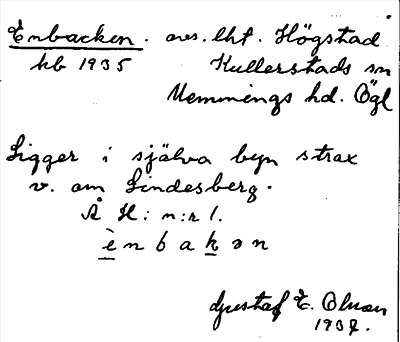 Enbacken. avs. lht. Högstad
kb 1935 Kullerstads sn
Memmings hd. Ögl
Ligger i själva byn strax
v. om Lindesberg.
Å H : n:r 1.
ènbakən
Gustaf E. Olson
1937.